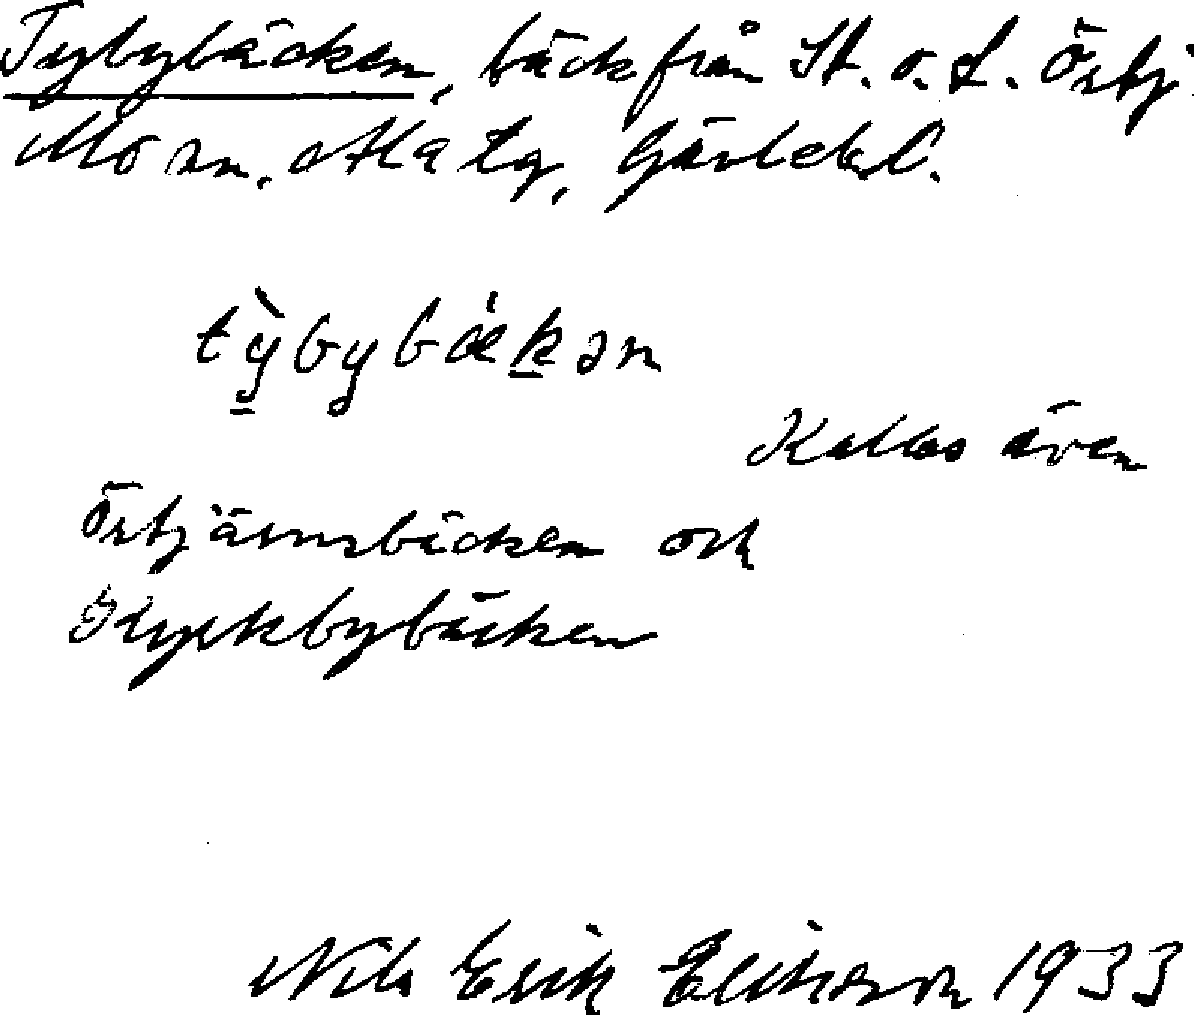 Tybybäcken, bäck från St. o. L. Örtj.
Mo sn. Ala tg, Gävlebl.
tỳ̠bybǽk̠ən
Kallas även
Örtjärnsbäcken och
Kyrkbybäcken
Nils Erik Elikson 1933